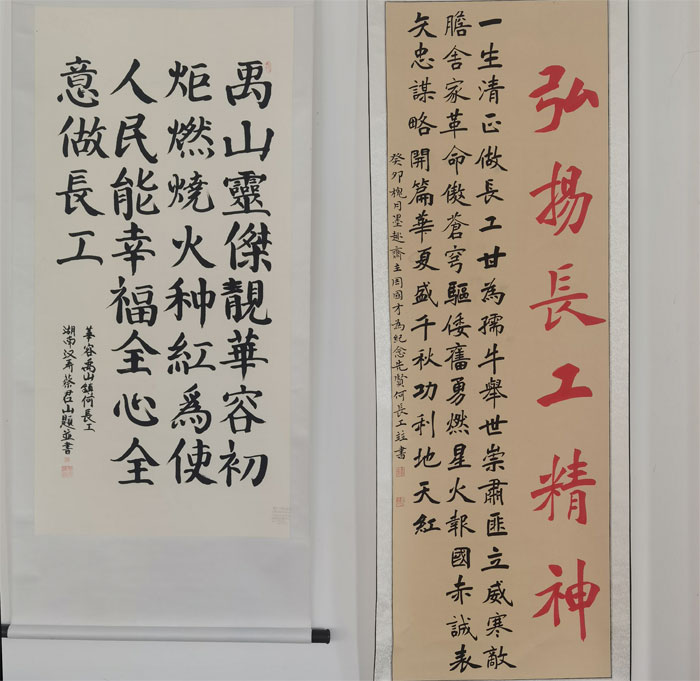 禹山靈傑靚華容初
炬燃燒火种紅爲使
人民能幸福全心全
意做長工
華容禹山鎮何長工
湖南汉寿蔡君山題並書
弘揚長工精神
一生清正做長工甘為孺牛舉世崇肅匪立威寒敵
膽舍家革命傲蒼穹驅倭奮勇燃星火報國赤誠表
矢忠謀略開篇華夏盛千秋功利地天紅
癸卯槐月墨趣齋主周国才為紀念先賢何長工並書